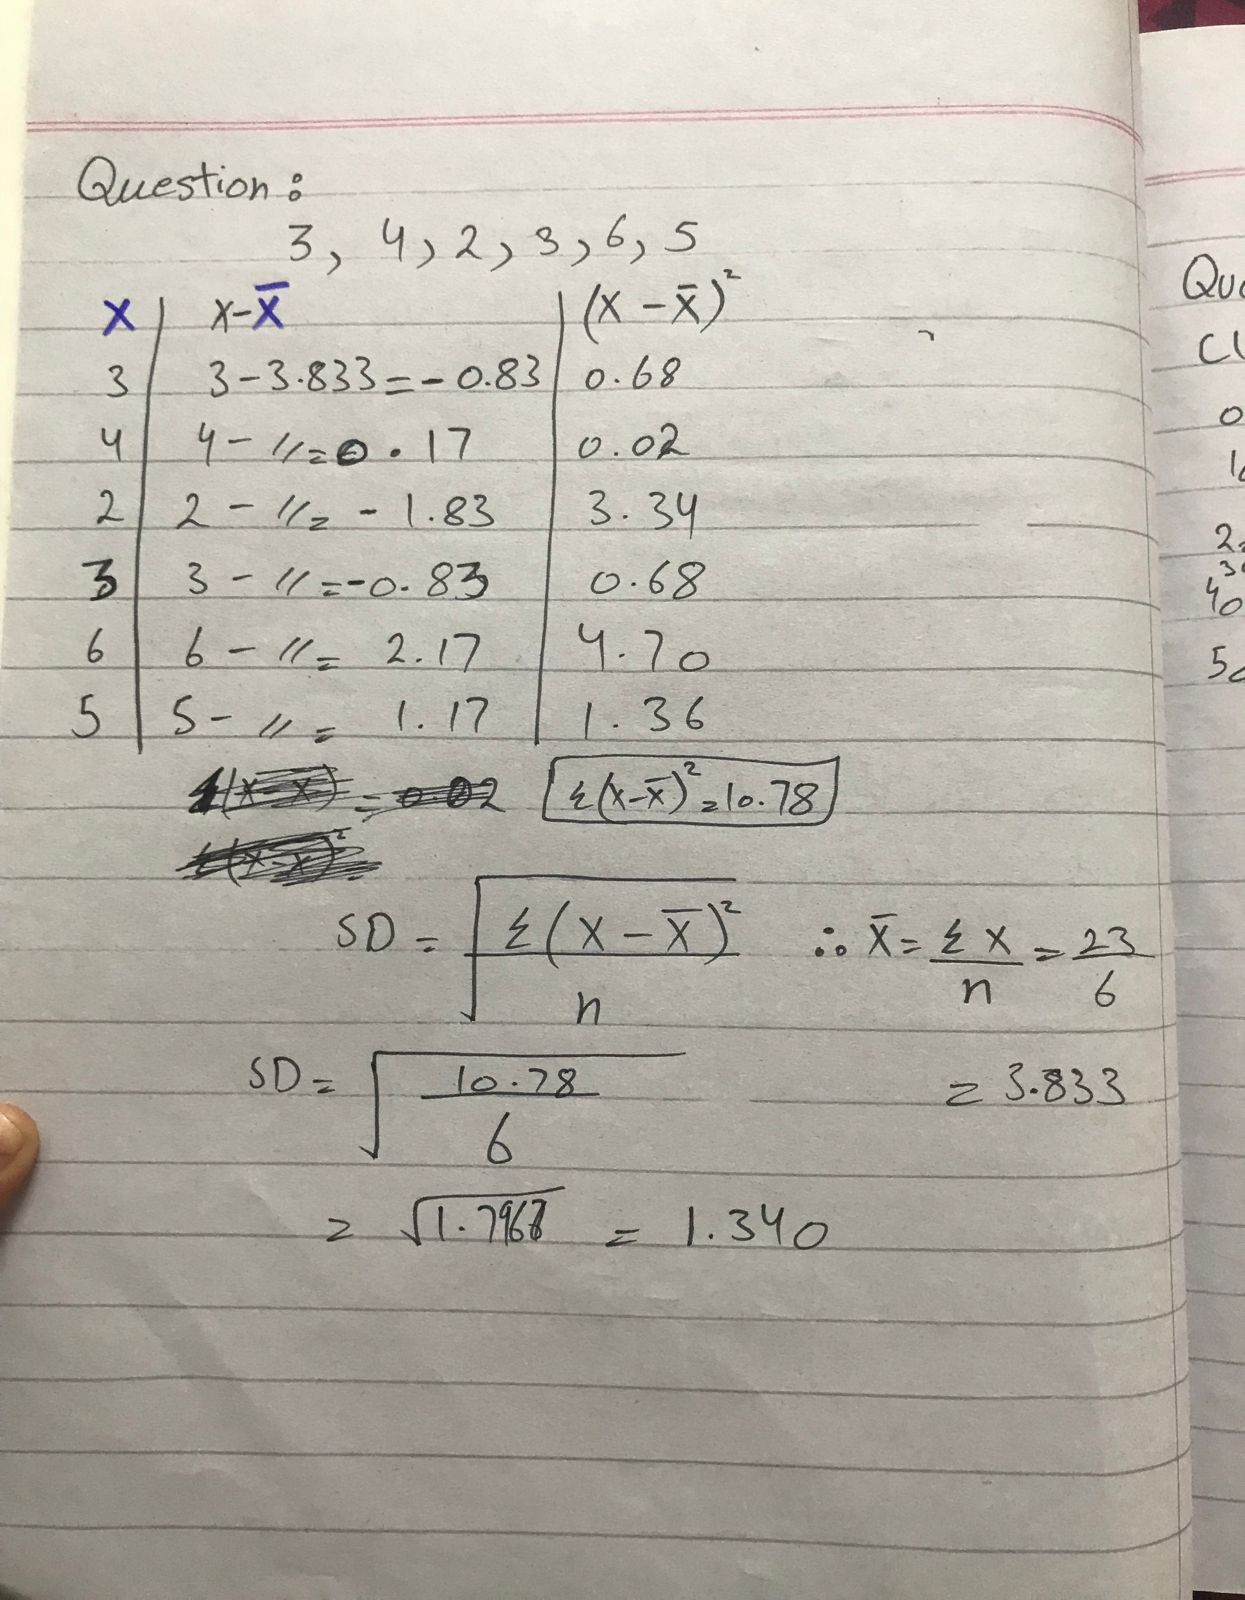 Question :
3, 4, 2, 3, 6, 5
X | X-X̄ | (X - X̄)²
3 | 3-3.833=-0.83 | 0.68
4 | 4-〃=0.17 | 0.02
2 | 2 - 〃= -1.83 | 3.34
3 | 3 - 〃=-0.83 | 0.68
6 | 6 - 〃= 2.17 | 4.70
5 | 5- 〃= 1.17 | 1.36
Σ(X-X̄)²=10.78
SD = √Σ(X-X̄)²/n ∴ X̄ = ΣX/n = 23/6
SD = √10.78/6 = 3.833
= √1.7967 = 1.340
Que
Cl
0
10
2
30
40
50